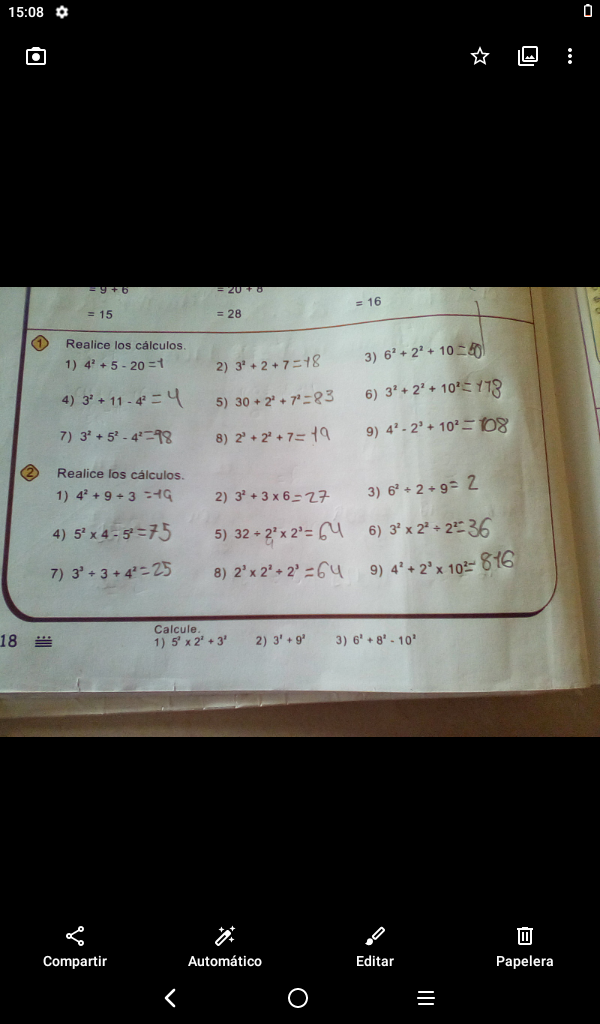 15:08
= 9 + 6 = 20 + 8
= 15 = 28 = 16
1 Realice los cálculos.
1) 4² + 5 - 20 = 1 2) 3² + 2 + 7 = 18 3) 6² + 2² + 10 = 50
4) 3² + 11 - 4² = 4 5) 30 + 2² + 7² = 83 6) 3² + 2² + 10² = 118
7) 3² + 5² - 4² = 98 8) 2³ + 2² + 7 = 19 9) 4² - 2³ + 10² = 108
2 Realice los cálculos.
1) 4² + 9 ÷ 3 = 19 2) 3² + 3 x 6 = 27 3) 6² ÷ 2 ÷ 9 = 2
4) 5² x 4 - 5² = 75 5) 32 ÷ 2² x 2³ = 64 6) 3² x 2² ÷ 2² = 36
7) 3³ ÷ 3 + 4² = 25 8) 2³ x 2² ÷ 2³ = 64 9) 4² + 2³ x 10² = 816
18 Calcule.
1) 5² x 2² + 3² 2) 3³ + 9² 3) 6³ + 8² - 10²
Compartir Automático Editar Papelera